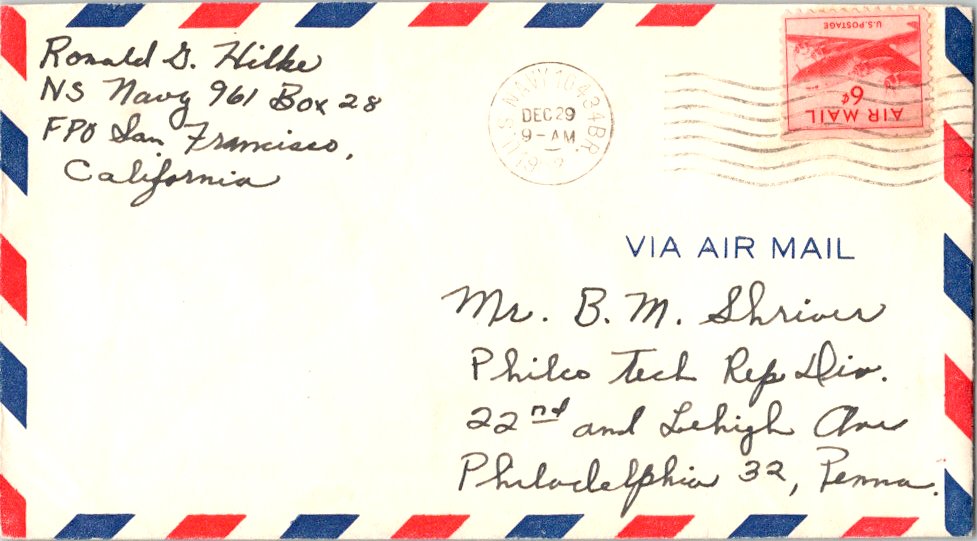 Ronald G. Hilke
NS Navy 961 Box 28
FPO San Francisco,
California
U.S. NAVY 10434 BR.
DEC 29
9-AM
U.S. POSTAGE
6¢
AIR MAIL
VIA AIR MAIL
Mr. B. M. Shriver
Philco Tech Rep Div.
22nd and Lehigh Ave
Philadelphia 32, Penna.